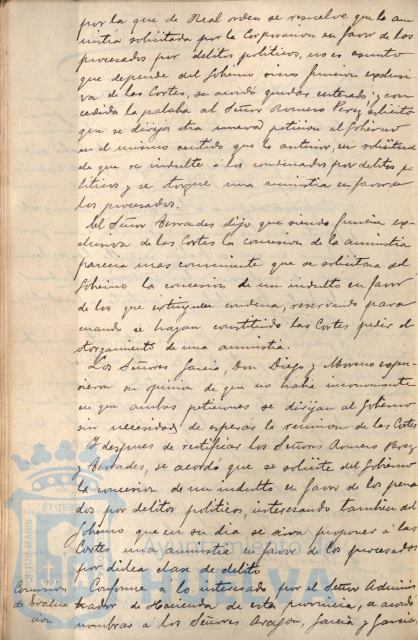 por la que de Real orden se resuelve que la am-
nistia solicitada por la Corporacion en favor de los
procesados por delitos politicos, no es asunto
que depende del Gobierno sino funcion exclusi-
va de las Cortes, se acordó quedar enterado; y con-
cedida la palabra al Señor Romero Perez solicitó
que se dirija otra nueva peticion al Gobierno
en el mismo sentido que la anterior, en solicitud
de que se indulte á los condenados por delitos po-
liticos y se otorgue una amnistia en favor de
los procesados.
El Señor Terrades dijo que siendo funcion ex-
clusiva de las Cortes la concesion de la amnistia
parecia mas conveniente que se solicitara del
Gobierno la concesion de un indulto en favor
de los que extinguen condena, reservando para
cuando se hayan constituido las Cortes pedir el
otorgamiento de una amnistia.
Los Señores Garcia, Don Diego y Moreno expu-
sieron su opinion de que no habia inconveniente
en que ambas peticiones se dirijan al Gobierno
sin necesidad de esperar la reunion de las Cortes
Y despues de rectificar los Señores Romero Perez
y Terrades, se acordó que se solicite del Gobierno
la concesion de un indulto en favor de los pena-
dos por delitos politicos, interesando tambien del
Gobierno que en su dia se sirva proponer á las
Cortes una amnistia en favor de los procesados
por dicha clase de delito
Conforme á lo interesado por el Señor Adminis
trador de Hacienda de esta provincia, se acordó
nombrar á los Señores Aragon, Garcia y Garcia
Comision
de
Ayuntamiento de
HUELVA